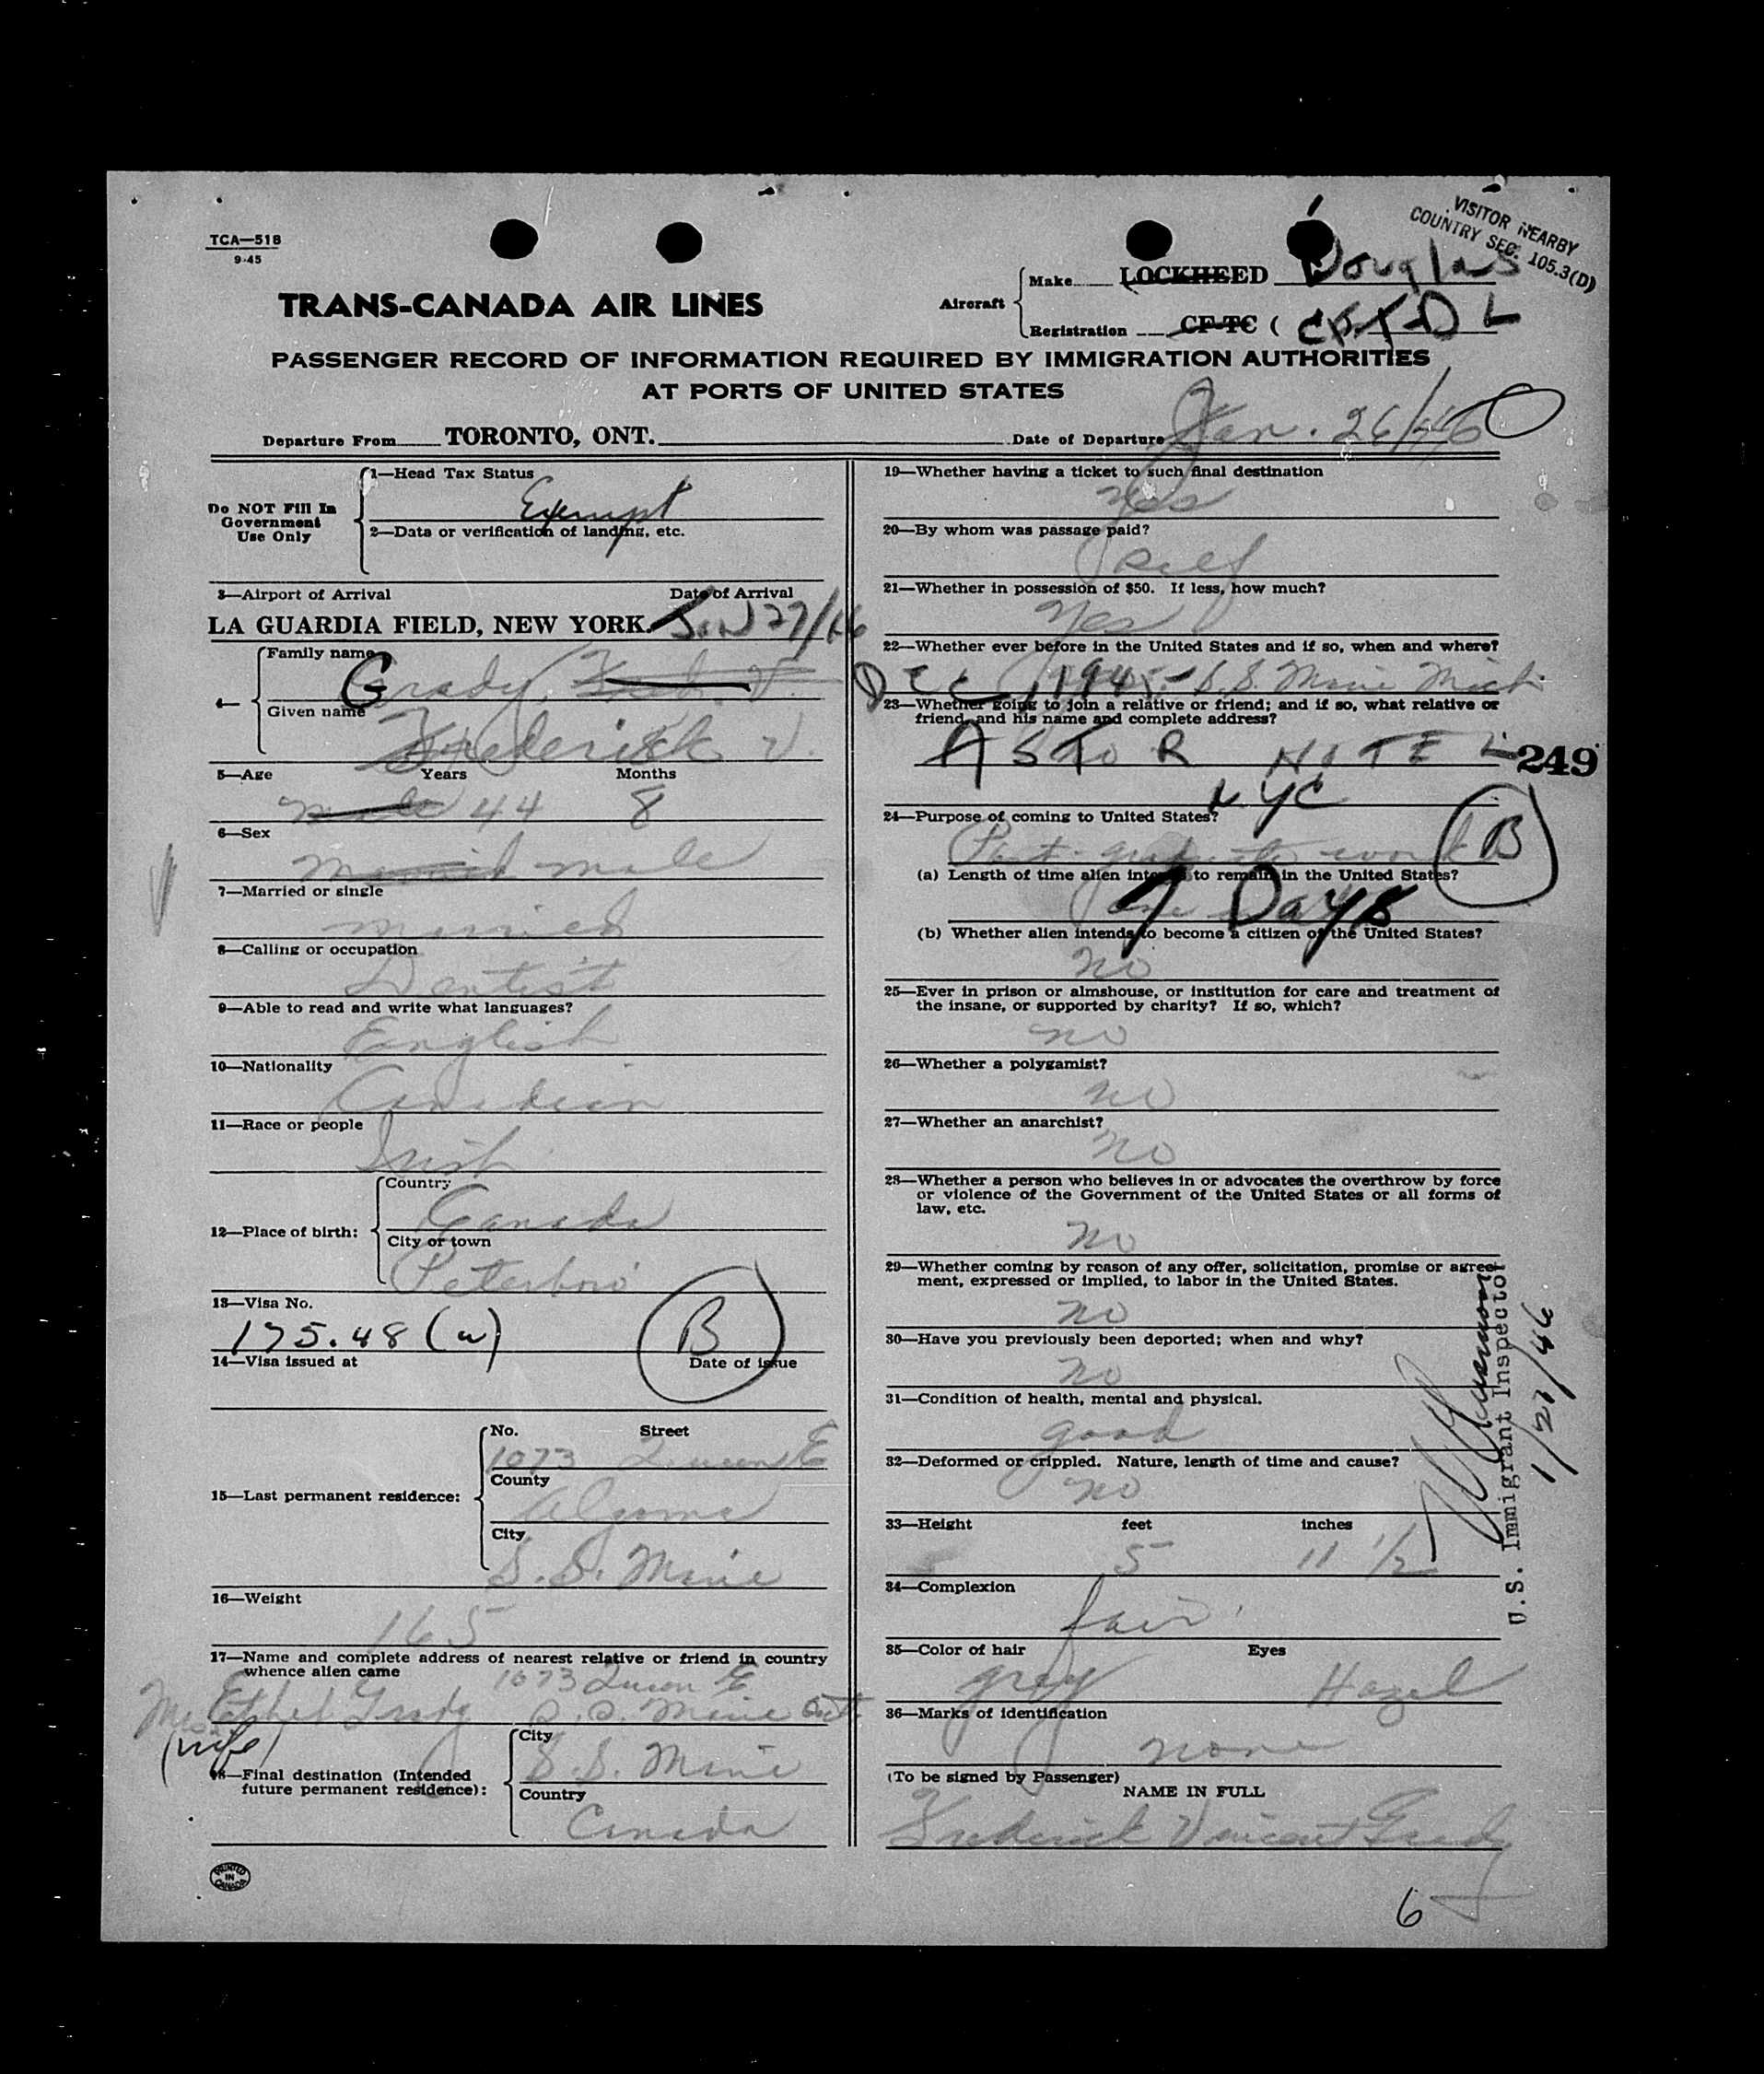 TCA—518
9-45
VISITOR NEARBY
COUNTRY SEC. 105.3(D)
TRANS-CANADA AIR LINES
Aircraft
Make LOCKHEED Douglas
Registration CF-TC ( CF-TDL
PASSENGER RECORD OF INFORMATION REQUIRED BY IMMIGRATION AUTHORITIES
AT PORTS OF UNITED STATES
Departure From TORONTO, ONT. Date of Departure Jan. 26/46
Do NOT Fill In
Government
Use Only
1—Head Tax Status
Exempt
2—Data or verification of landing, etc.
3—Airport of Arrival Date of Arrival
LA GUARDIA FIELD, NEW YORK. Jan 27/46
4—
Family name
Grady, Fred. V.
Given name
Frederick V.
5—Age Years Months
male 44 8
6—Sex
married male
7—Married or single
married
8—Calling or occupation
Dentist
9—Able to read and write what languages?
English
10—Nationality
Canadian
11—Race or people
Irish
12—Place of birth:
Country
Canada
City or town
Peterboro
13—Visa No.
175.48 (a)
B
14—Visa issued at Date of issue
15—Last permanent residence:
No. Street
1073 Queen E
County
Algoma
City
S.S. Marie
16—Weight
165
17—Name and complete address of nearest relative or friend in country
whence alien came 1073 Queen E
Mrs Ethel Grady S.S. Marie Ont.
(wife)
18—Final destination (Intended
future permanent residence):
City
S.S. Marie
Country
Canada
PRINTED
IN
CANADA
19—Whether having a ticket to such final destination
Yes
20—By whom was passage paid?
Self
21—Whether in possession of $50. If less, how much?
Yes
22—Whether ever before in the United States and if so, when and where?
DEC, 1945 - S.S. Marie Mich
23—Whether going to join a relative or friend; and if so, what relative or
friend, and his name and complete address?
ASTOR HOTEL
249
NYC
24—Purpose of coming to United States?
Post-graduate work
B
(a) Length of time alien intends to remain in the United States?
7 Days
(b) Whether alien intends to become a citizen of the United States?
no
25—Ever in prison or almshouse, or institution for care and treatment of
the insane, or supported by charity? If so, which?
no
26—Whether a polygamist?
no
27—Whether an anarchist?
no
28—Whether a person who believes in or advocates the overthrow by force
or violence of the Government of the United States or all forms of
law, etc.
no
29—Whether coming by reason of any offer, solicitation, promise or agree-
ment, expressed or implied, to labor in the United States.
no
30—Have you previously been deported; when and why?
no
31—Condition of health, mental and physical.
good
32—Deformed or crippled. Nature, length of time and cause?
no
33—Height feet inches
5 11 1/2
34—Complexion
fair
35—Color of hair Eyes
grey Hazel
36—Marks of identification
none
(To be signed by Passenger)
NAME IN FULL
Frederick Vincent Grady
U.S. Immigrant Inspector
1/27/46
6